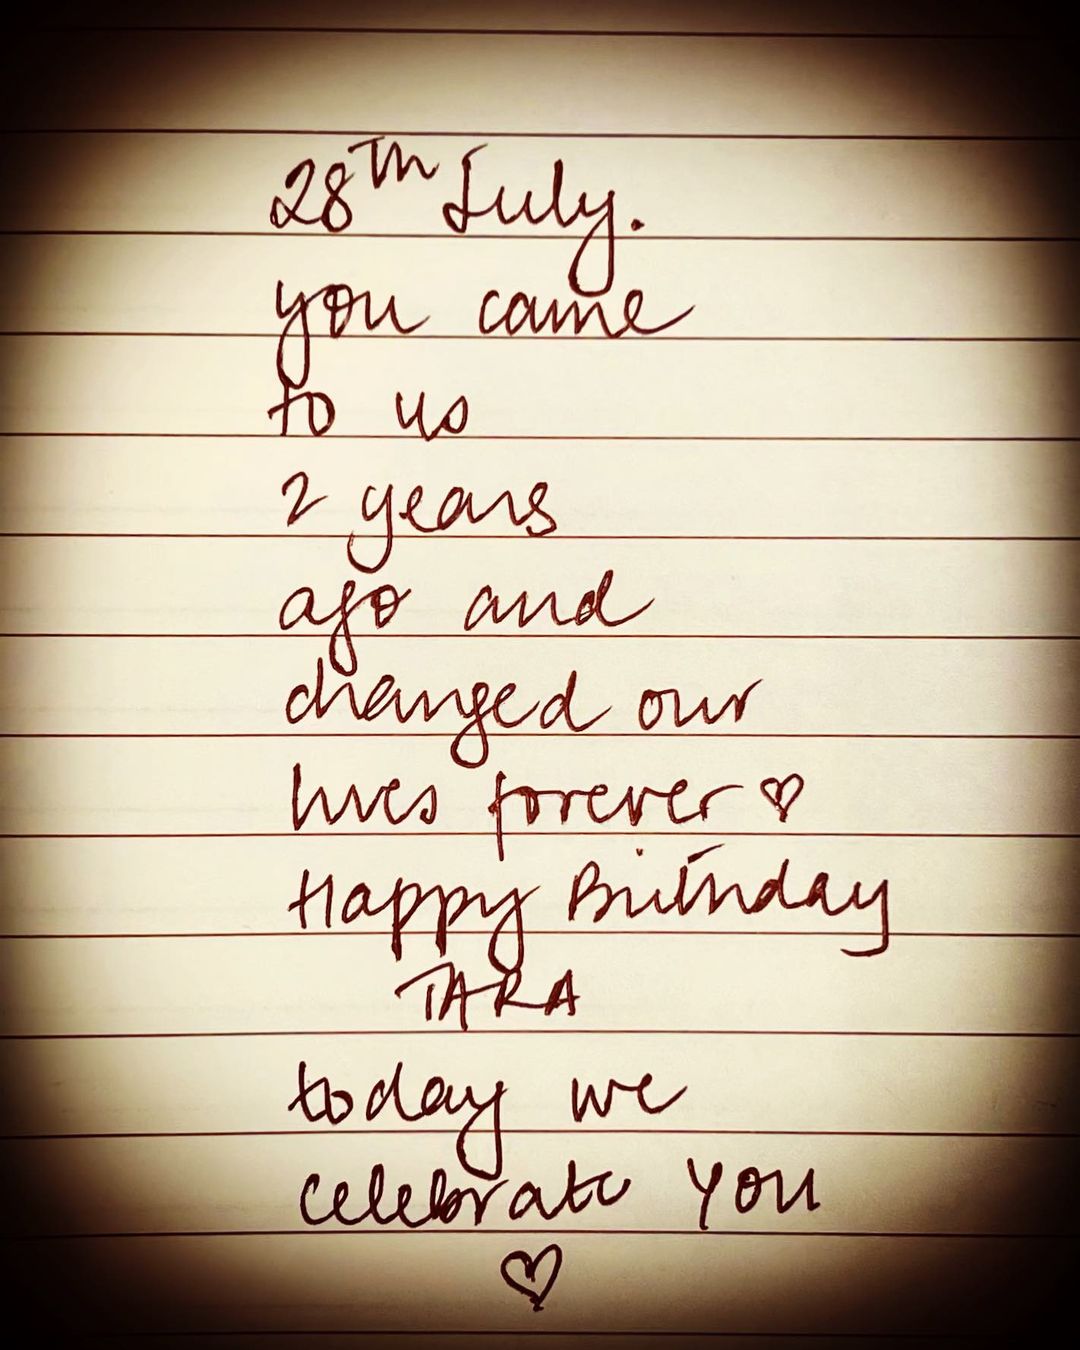 28th July.
you came
to us
2 years
ago and
changed our
lives forever ♡
Happy Birthday
TARA
today we
celebrate you
♡